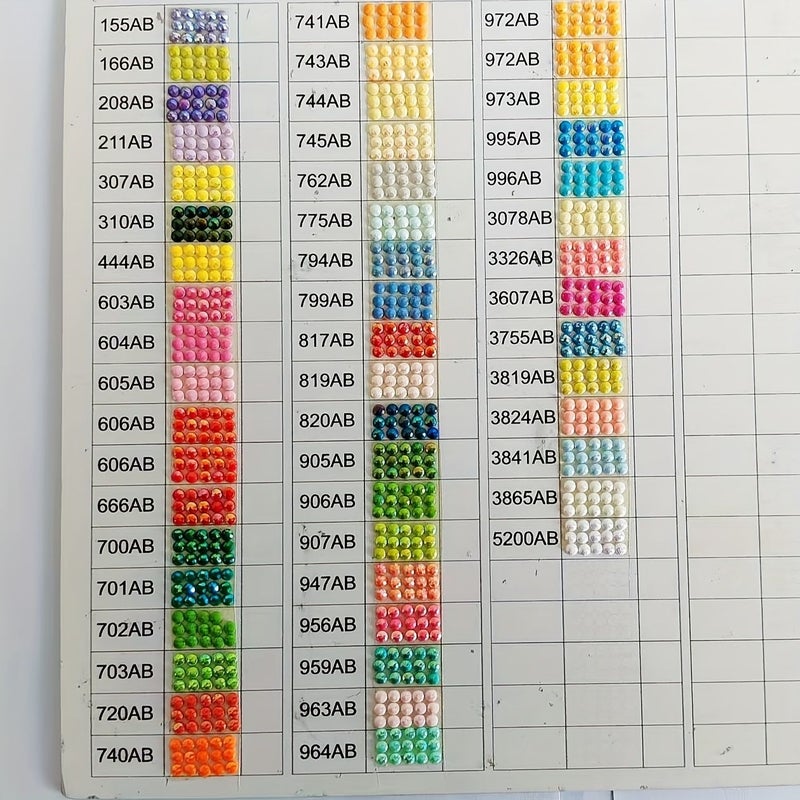 155AB
166AB
208AB
211AB
307AB
310AB
444AB
603AB
604AB
605AB
606AB
606AB
666AB
700AB
701AB
702AB
703AB
720AB
740AB
741AB
743AB
744AB
745AB
762AB
775AB
794AB
799AB
817AB
819AB
820AB
905AB
906AB
907AB
947AB
956AB
959AB
963AB
964AB
972AB
972AB
973AB
995AB
996AB
3078AB
3326AB
3607AB
3755AB
3819AB
3824AB
3841AB
3865AB
5200AB